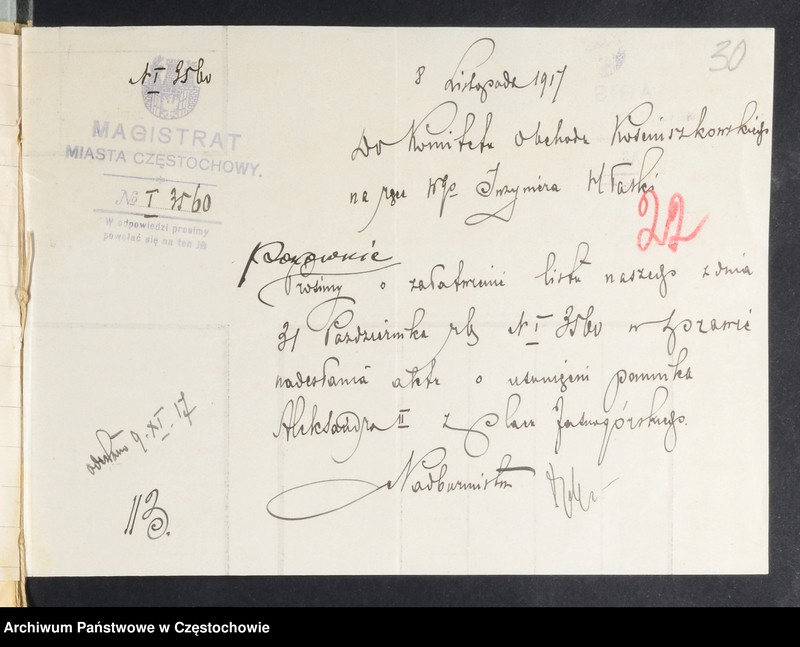 N I 3560
8 Listopada 1917
30
MAGISTRAT
MIASTA CZĘSTOCHOWY.
№ I 3560
W odpowiedzi prosimy
powołać się na ten №
Do Komitetu Obchodu Kościuszkowskiego
na ręce WPo Inżyniera
22
Ponownie
Prosimy o załatwienie listu naszego z dnia
31 Października rb N I 3560 w sprawie
nadesłania aktu o usunięciu pomnika
Aleksandra II z placu Jasnogórskiego.
Nadburmistrz
9. XI. 17
113.
Archiwum Państwowe w Częstochowie